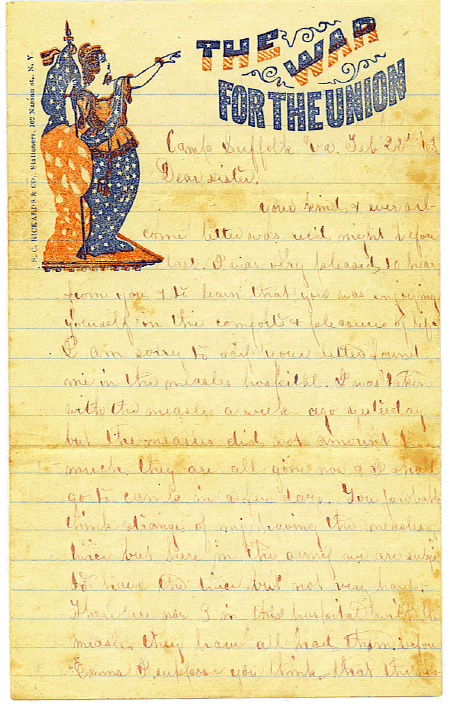 THE WAR
FOR THE UNION
S. C. RICKARDS & CO., Stationers, 102 Nassau st. N. Y.
Camp Suffolk Va Feb 22nd 63
Dear sister.
your kind & ever wel-
come letter was rec'd night before
last. I was very pleased to hear
from you & to learn that you was enjoying
yourself in the comforts & pleasures of life
I am sorry to say your letter found
me in the measles hospital. I was taken
with the measles a week ago yesterday
but the measles did not amount to
much they are all gone now & I shall
go to camp in a few days. You probably
think strange of my having the measles
twice but here in the army we are subject
to have them twice but not very hard.
There are now 3 in this hospital with the
measles they have all had them before
Emma I suppose you think that the